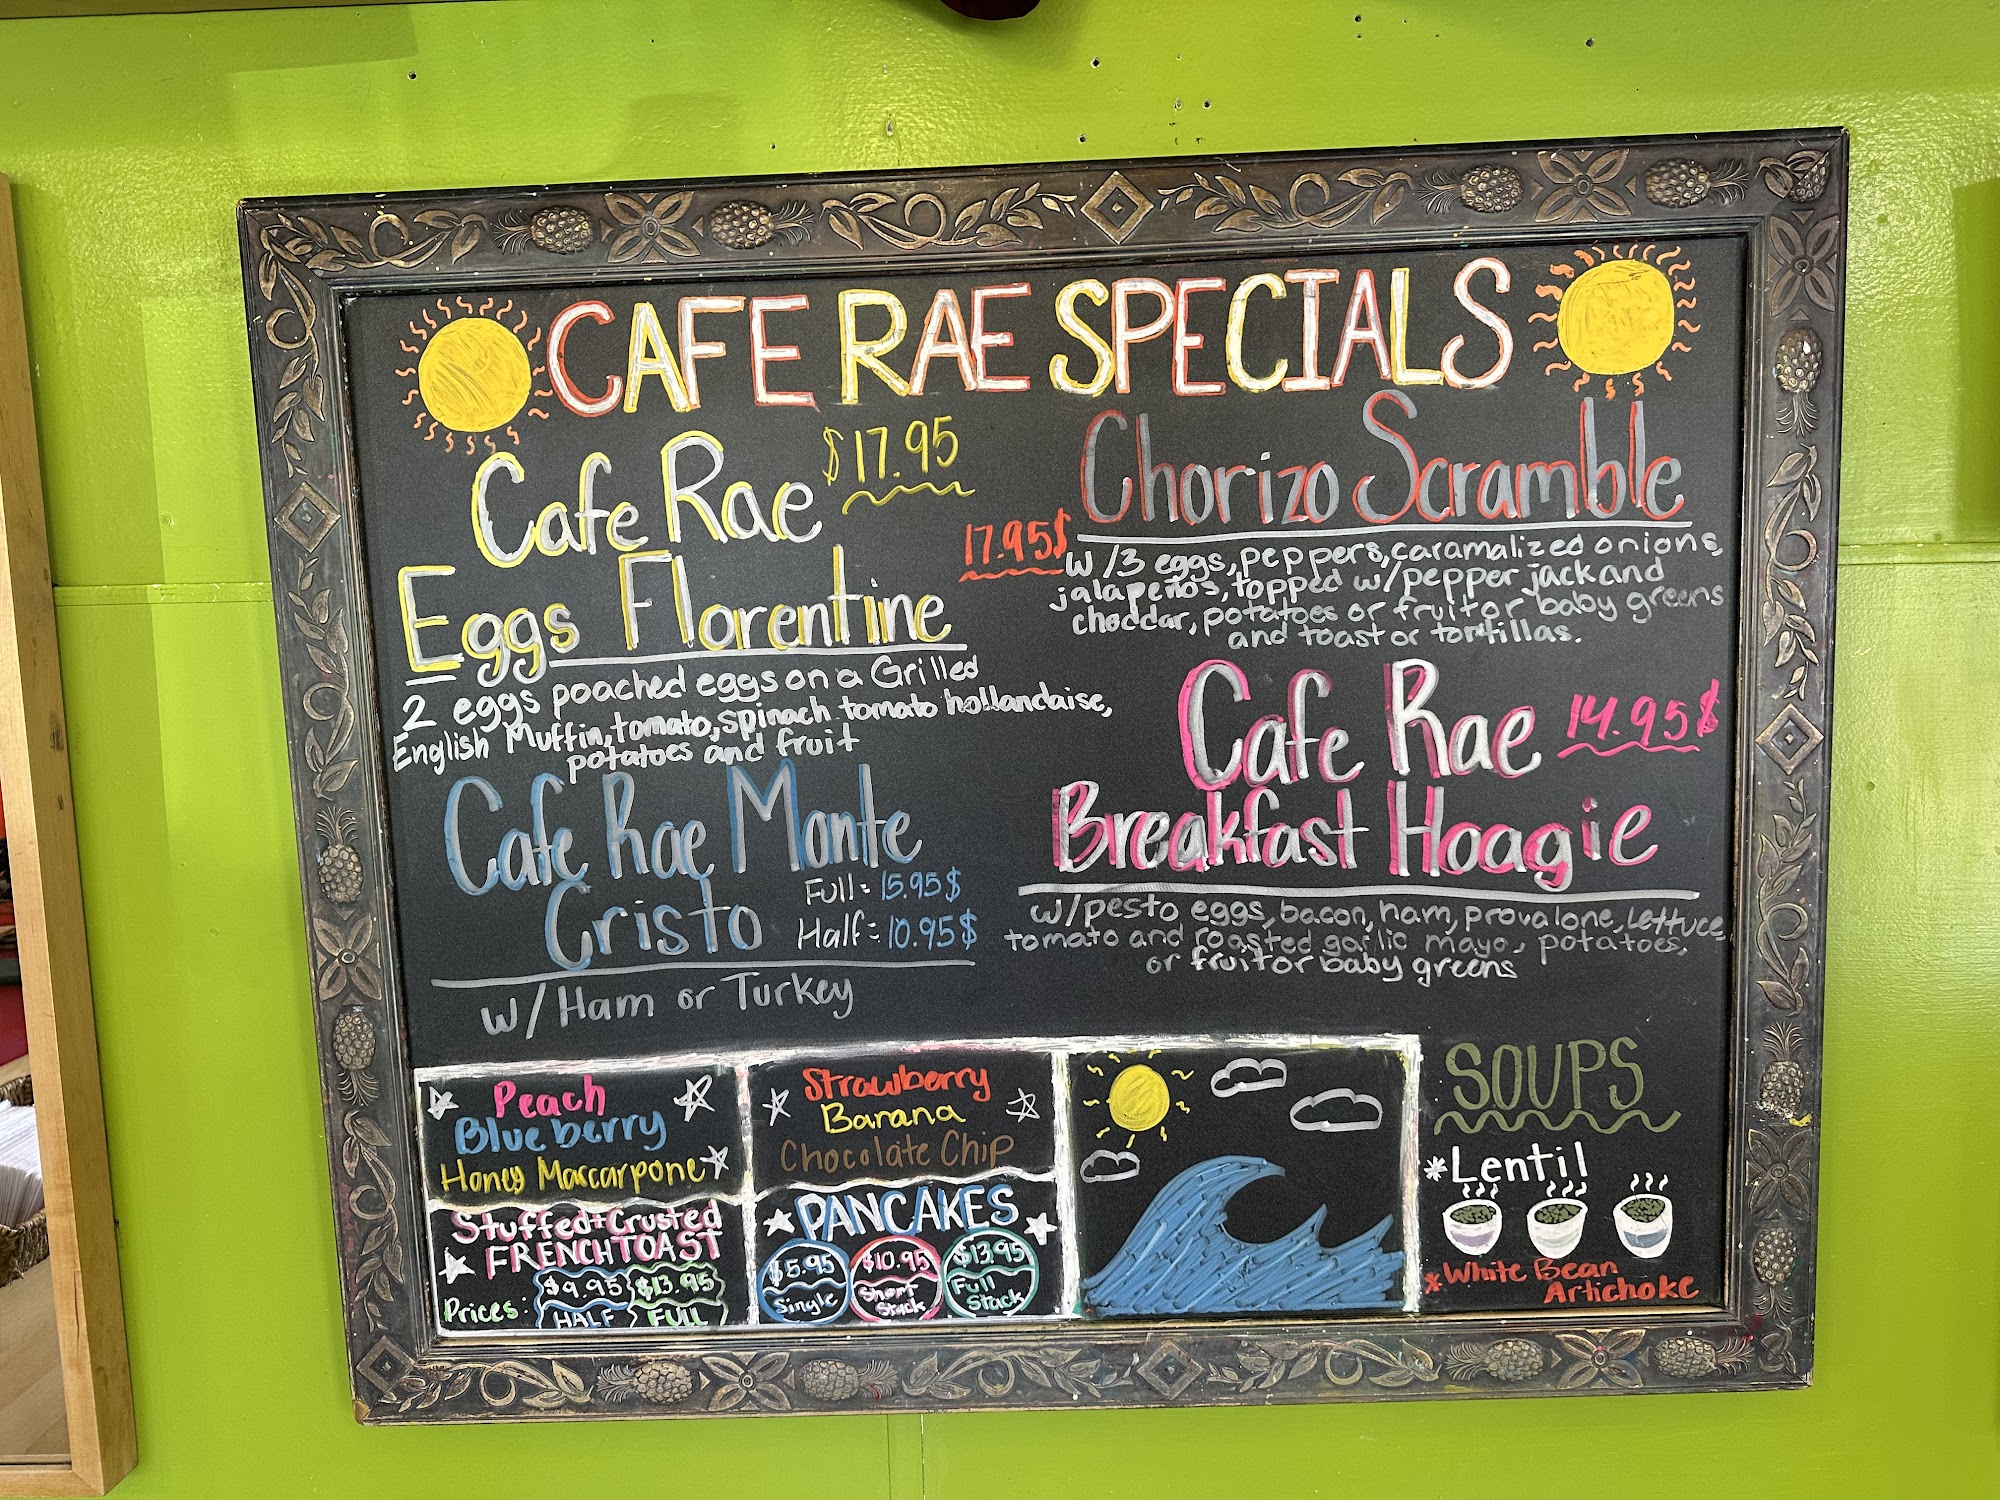 CAFE RAE SPECIALS
Cafe Rae $17.95
Eggs Florentine
2 eggs poached eggs on a Grilled
English Muffin, tomato, spinach tomato hollandaise,
potatoes and fruit
Cafe Rae Monte
Cristo
Full = 15.95$
Half = 10.95$
w/ Ham or Turkey
Chorizo Scramble
17.95$
w/3 eggs, peppers, caramalized onions,
jalapeños, topped w/pepper jack and
cheddar, potatoes or fruit or baby greens
and toast or tortillas.
Cafe Rae 14.95$
Breakfast Hoagie
w/pesto eggs, bacon, ham, provalone, lettuce,
tomato and roasted garlic mayo, potatoes,
or fruit or baby greens
Peach
Blueberry
Honey Maccarpone
Stuffed + Crusted
FRENCH TOAST
Prices: $9.95 $13.95
HALF FULL
Strawberry
Banana
Chocolate Chip
PANCAKES
$5.95 $10.95 $13.95
Single Short Stack Full Stack
SOUPS
*Lentil
*White Bean
Artichoke